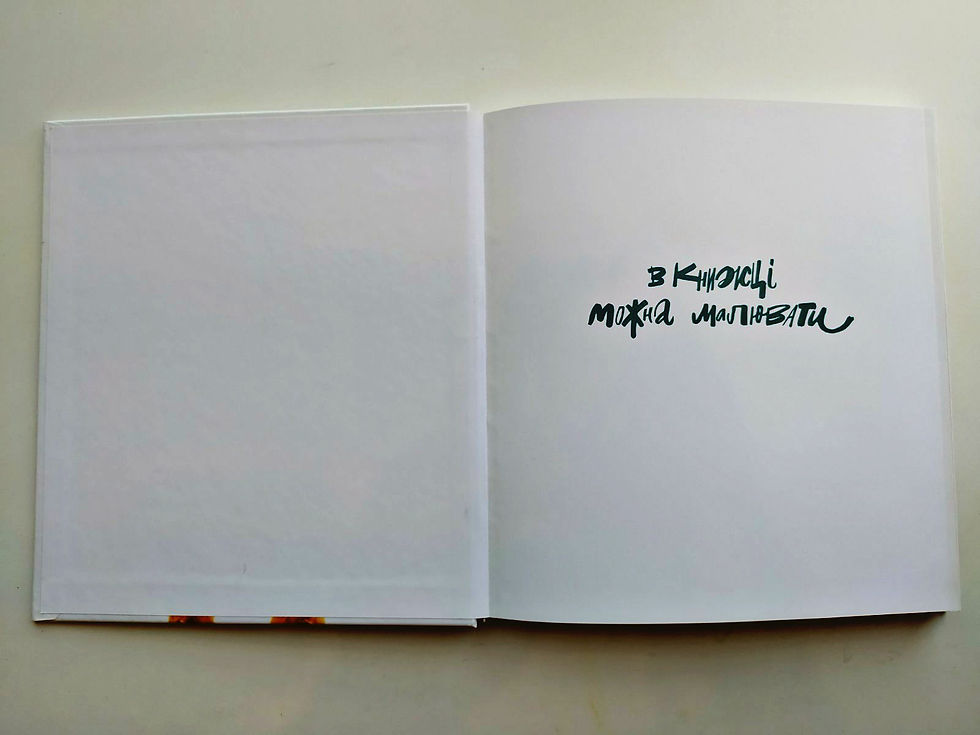 в книжці
можна малювати